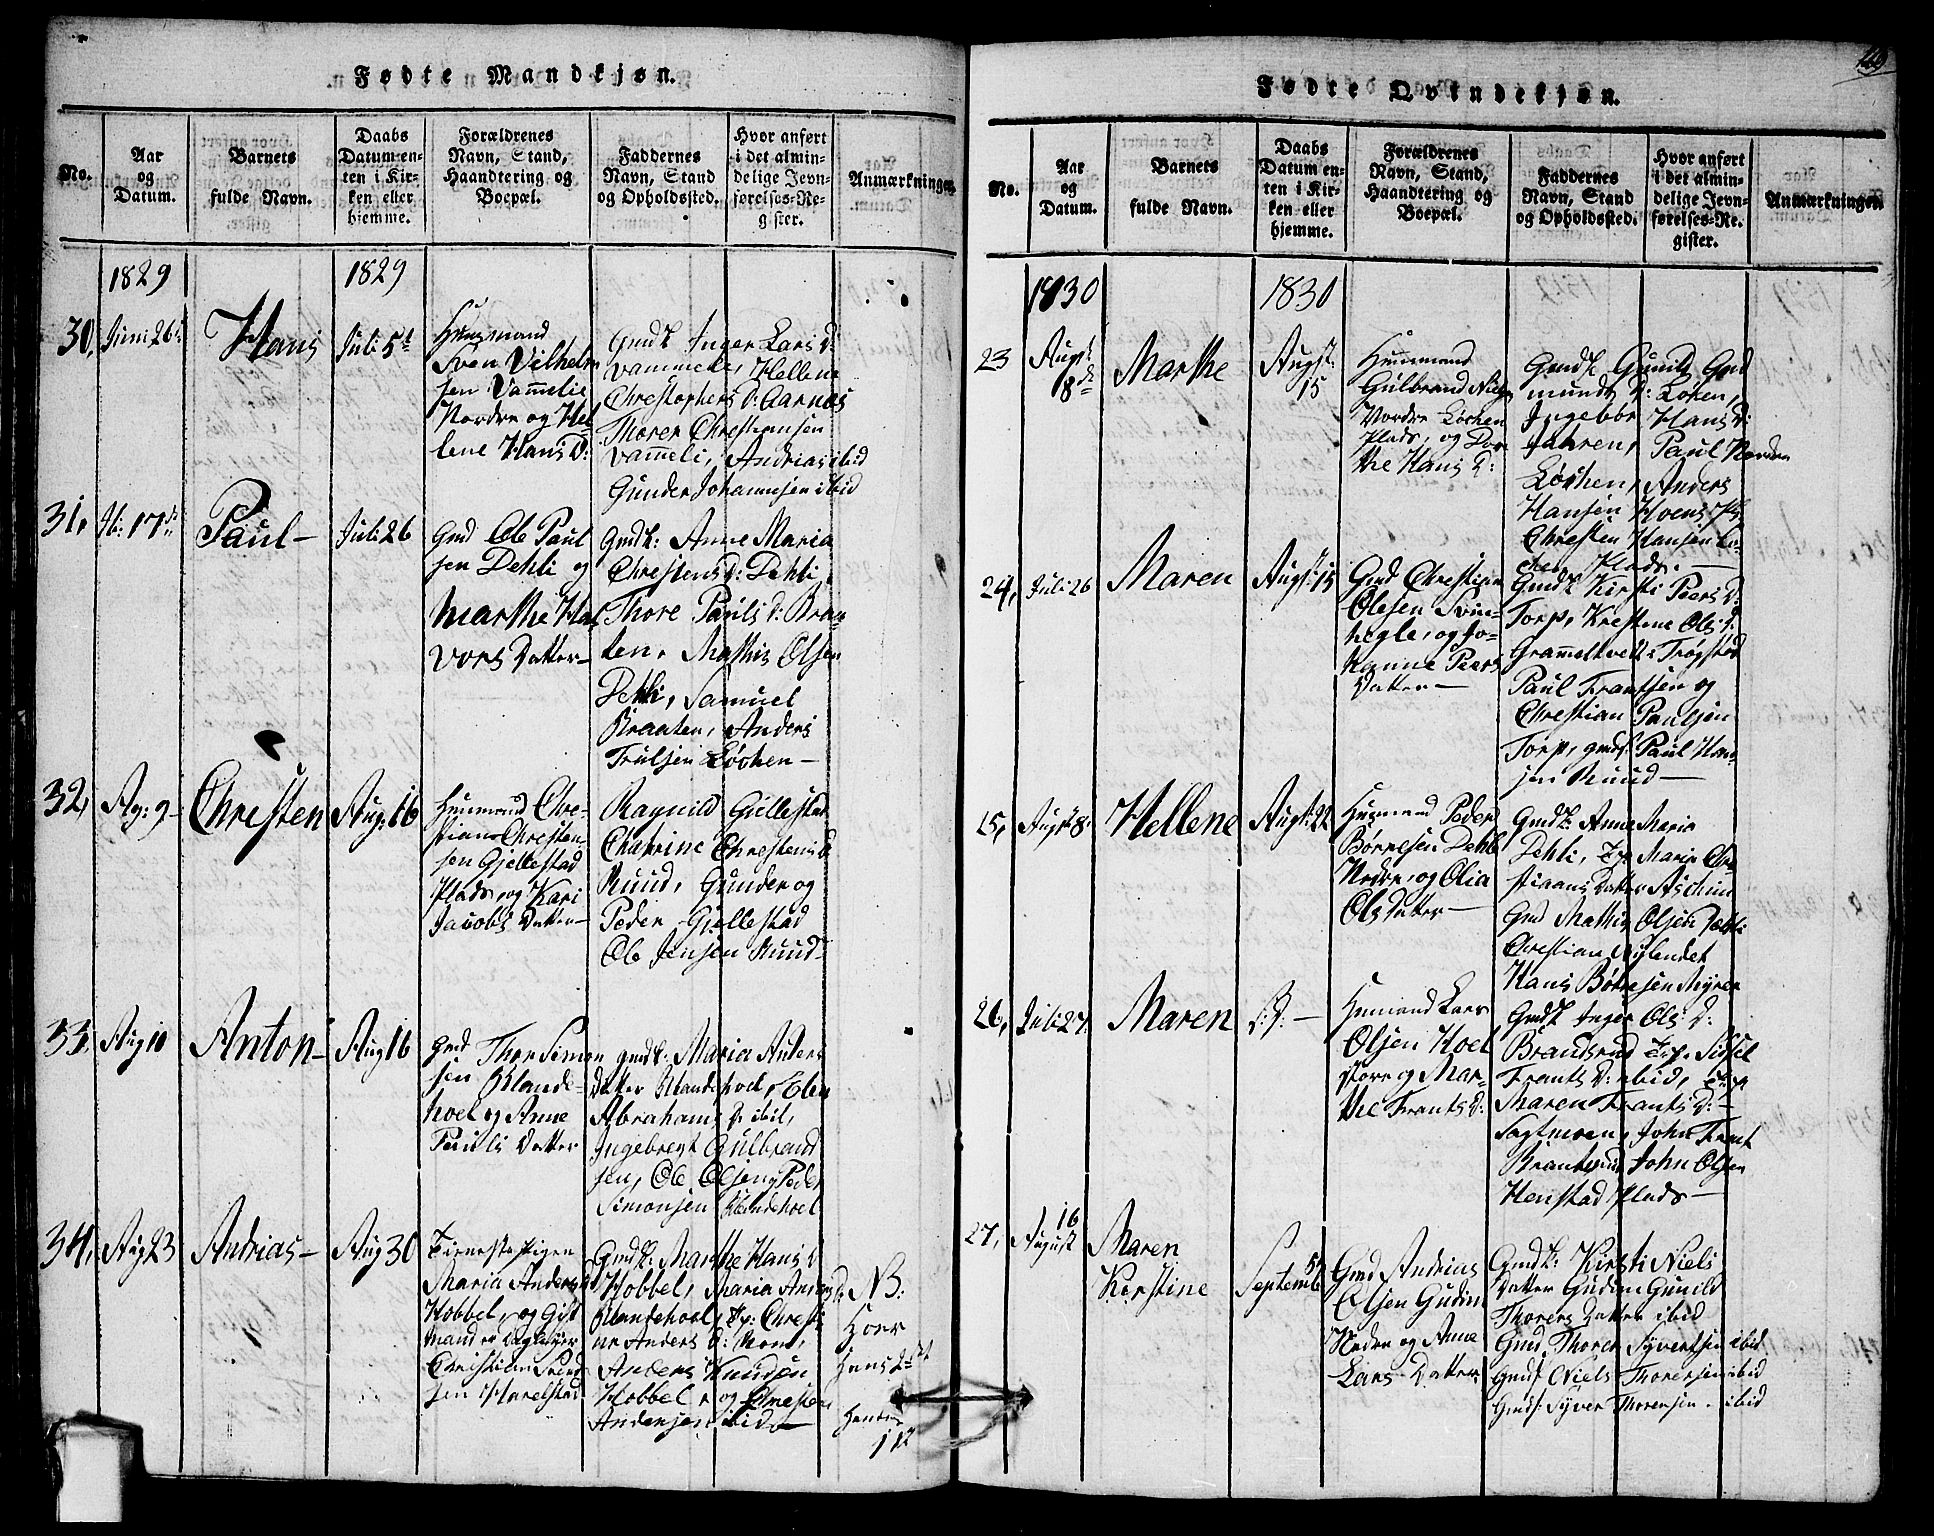 Fødte Mandkjøn.
No.
Aar
og
Datum.
Barnets
fulde Navn.
Daabs
Datum en-
ten i Kir-
ken eller
hjemme.
Forældrenes
Navn, Stand,
Haandtering og
Boepæl.
Faddernes
Navn, Stand
og Opholdssted.
Hvor anført
i det almin-
delige Jevn-
førelses-Re-
gister.
Anmærkninger.
1829
1829
30,
Juni 26
Hans
Juli 5t
Huusmand
Sven Vilhelm
sen Vammelie
Nordre og Hel-
lene Hans D:
Gmdk Inger Lars D:
Vammelie, Hellene
Christophers D: Aarnæs
Thorer Christiansen
Vammeli, Andrias ibid
Gunder Johannesen ibid
31,
Ib: 17de
Paul
Juli 26
Gmd Ole Paul
sen Dehli og
Marthe Hal
vors Datter
Gmdk: Anne Maria
Christens D: Dehli,
Thore Pauls D: Braa-
ten, Mathis Olsen
Dehli, Samuel
Braaten, Anders
Trulsen Løchen
32,
Ag: 9
Christen
Aug: 16
Huusmand Chri-
stian Christen
sen Gjellestad
Plads, og Kari
Jacobs Datter
Ragnild Gillestad
Chatrine Christens D
Ruud, Gunder og
Peder Gjellestad
Ole Jensen Ruud
33,
Aug 10
Anton
Aug 16
Gmd Thor Simon
sen Blande-
hoel og Anne
Pauls Datter
gmdk: Maria Anders
Datter Blandehoel, Elen
Abrahams D: ibid,
Ingebregt Gulbrand
sen, Ole Olsen og Peder
Simonsen Blandehoel
34,
Aug 23
Andrias
Aug 30
Tieneste Pigen
Maria Anders D
Hobbel, og Gift
Mand
Christian Svend
sen Harelstad
Gmdk: Marthe Hans D
Hobbel, Maria Anders D:
Blandehoel, Tp: Christi
ane Anders D: Moen,
Anders Knudsen
Hobbel og
Andersen ibid
NB:
Hoer
Hans 2det
112
Fødte Qvindekjøn.
149
No.
Aar
og
Datum.
Barnets
fulde Navn.
Daabs
Datum en-
ten i Kir-
ken eller
hjemme.
Forældrenes
Navn, Stand,
Haandtering og
Boepæl.
Faddernes
Navn, Stand
og Opholdssted.
Hvor anført
i det almin-
delige Jevn-
førelses-Re-
gister.
Anmærkninger.
1830
1830
23
Augst
8de
Marthe
Augst
15
Huusmand
Gulbrand Niels
Nordre Løchen
Plads, og Dor
the Hans D:
Gmdk Gunild Gud
munds D: Løken,
Ingebor Hans D:
Jahren, Paul Nordre
Løchen, Anders
Hansen Hoens Pl:
Christen Hansen Lø-
chen Plads.
24,
Juli 26
Maren
Augst 15
Gmd Christian
Olesen Svin-
hegle, og Jo-
hanne Peers
Datter
Gmdk Kirsti Peers D:
Torp, Kristene Ols D:
Grameltvett: Trøgstad
Paul Frantsen og
Christian Paulsen
Torp, gmds: Paul Han-
sen Ruud
25,
Augst 8
Hellene
Augst: 22
Husmand Peder
Børresen Dehli
Nedre, og Olia
Ols Datter
Gmdk: Anne Maria
Dehli, Tp: Marie Chri
stians Datter Aschim
Gmd Mathis Olsen Dæhli
Christian Nylendet
Hans Børresen Myrer
26,
Juli 27
Maren
Husmand Lars
Olsen Hoel
store og Mar-
the Frants D:
Gmdk Inger Ols D:
Brandsrud Tp: Sissel
Frants D: ibid, Tp:
Maren Frants D:
Sagtmoen, John Frant
Brantsrud John Olsen
Henstad Plads
27,
16
August
Maren
Kirstine
5t
Septemb
Gmd Andrias
Olsen Gudim
Nedre og Anne
Lars Datter
Gmdk: Kirsti Niels
Datter Gudim Gunild
Thorers Datter ibid
Gmd Thorer Syvertsen ibid
Gmds Niels Thorersen ibid
Gmds: Syver Thorersen. ibid